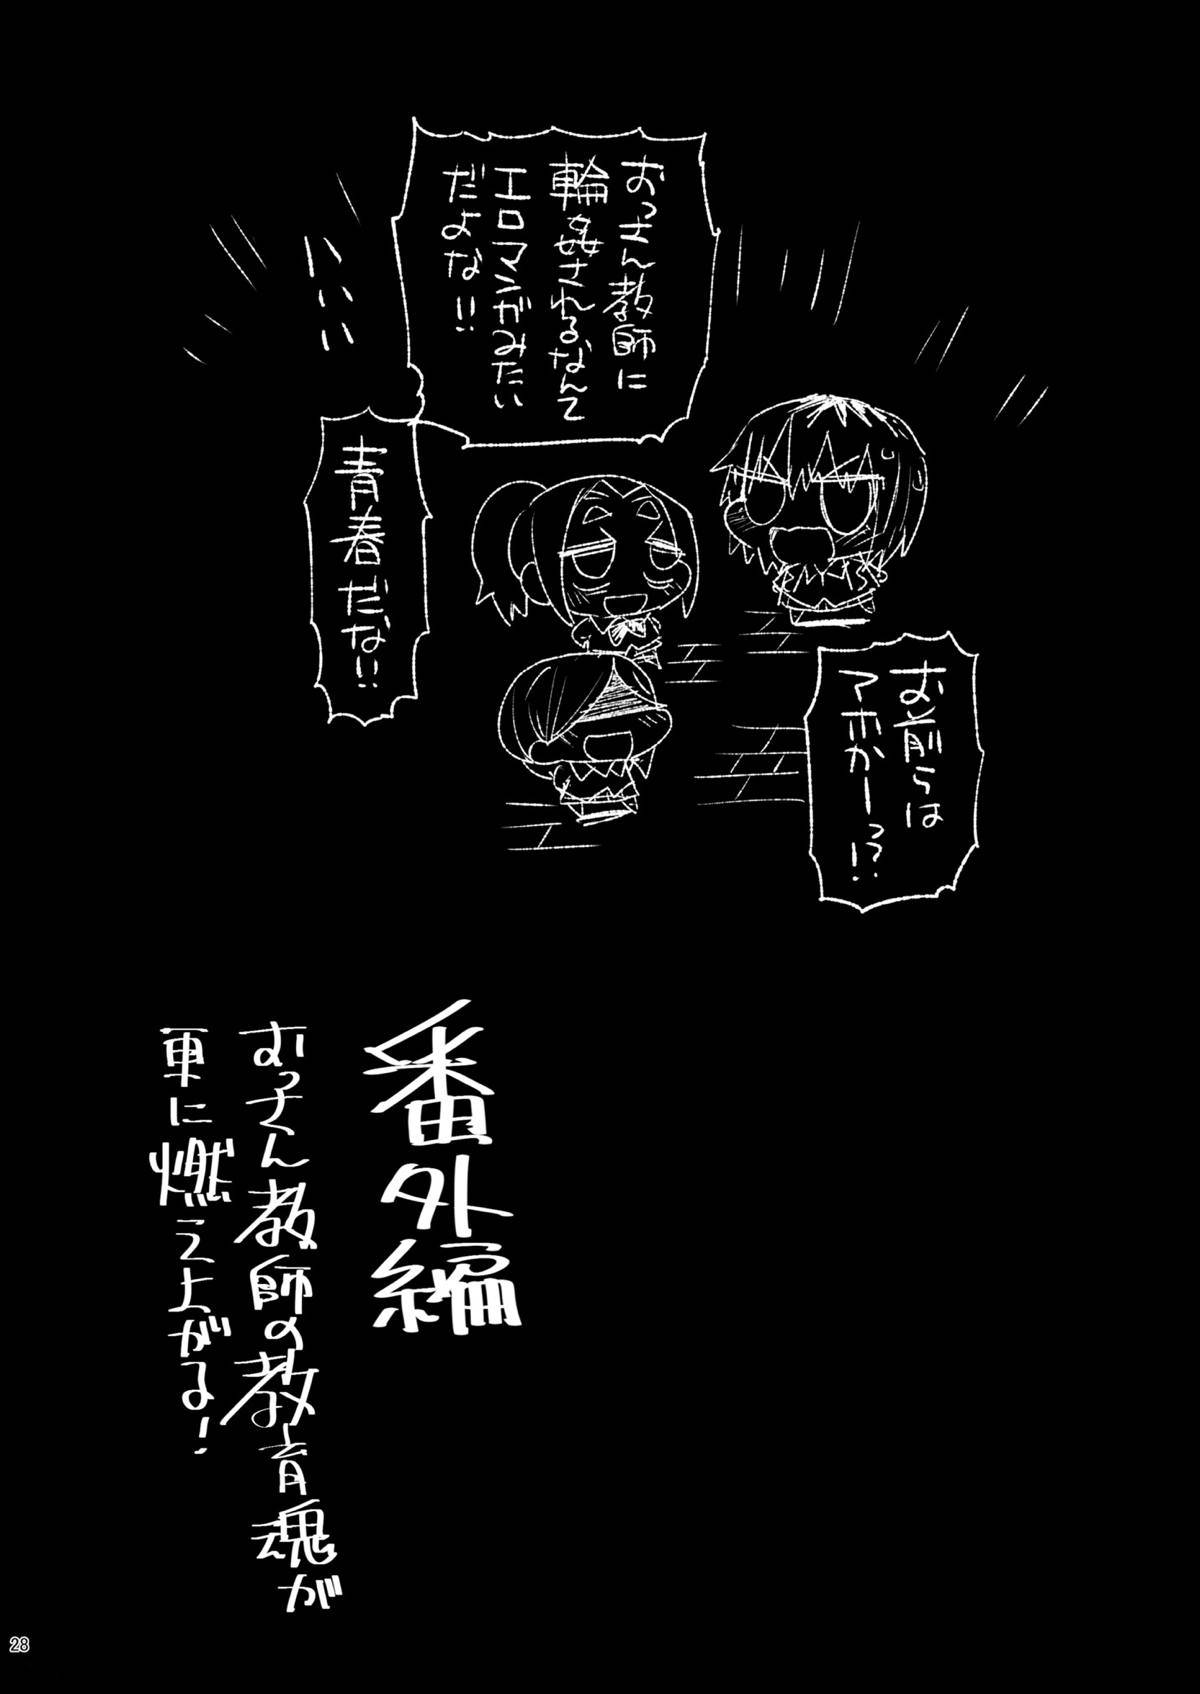 おっさん教師に
輪姦されるなんて
エロマンガみたい
だよな!!
青春だな!!
お前らは
アホかーっ!?
番外編
おっさん教師の教育魂が
更に燃え上がる!
28